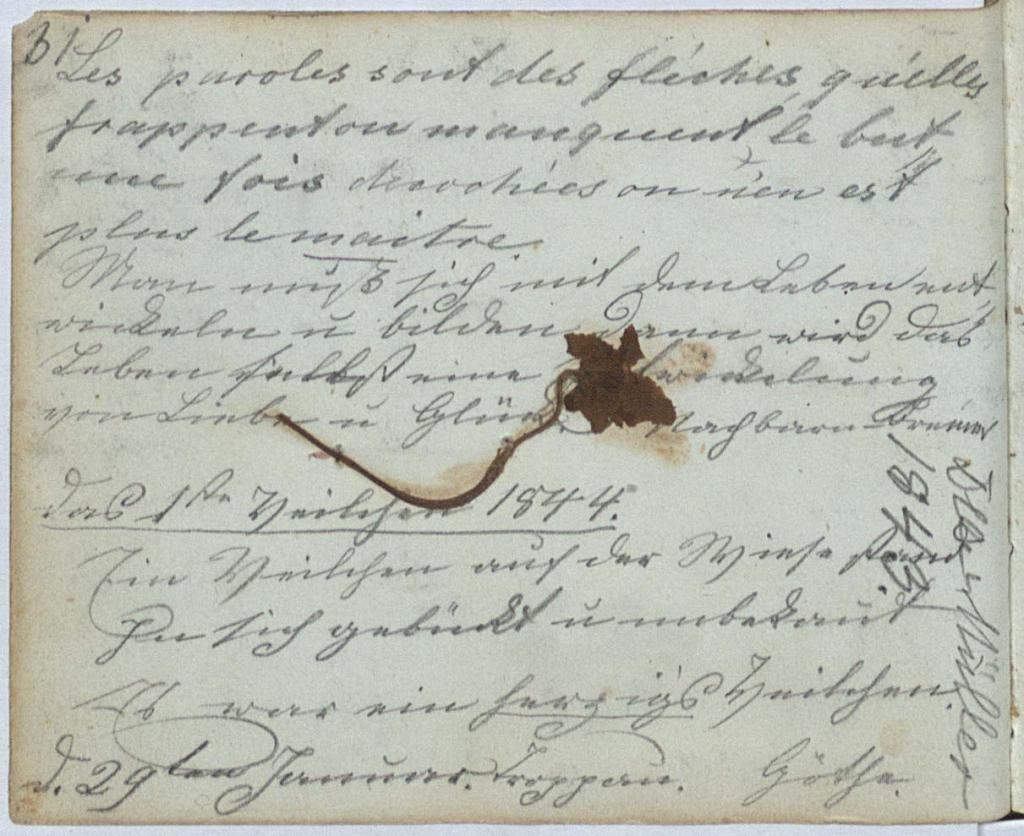 31
Les paroles sont des fléches, qu'elles
frappent ou manquent le but
une fois decochées on n'en est
plus le maitre.
Man muß sich mit dem Leben ent
wickeln u bilden dann wird das
Leben selbst eine Entwickelung
von Liebe u Glück. Nachbarn Bremer
das 1ste Veilchen 1844.
Ein Veilchen auf der Wiese stand
In sich gebückt u unbekant
Es war ein herzigs Veilchen.
d. 29ten Januar. Troppau. Göthe.
1843.
Müller